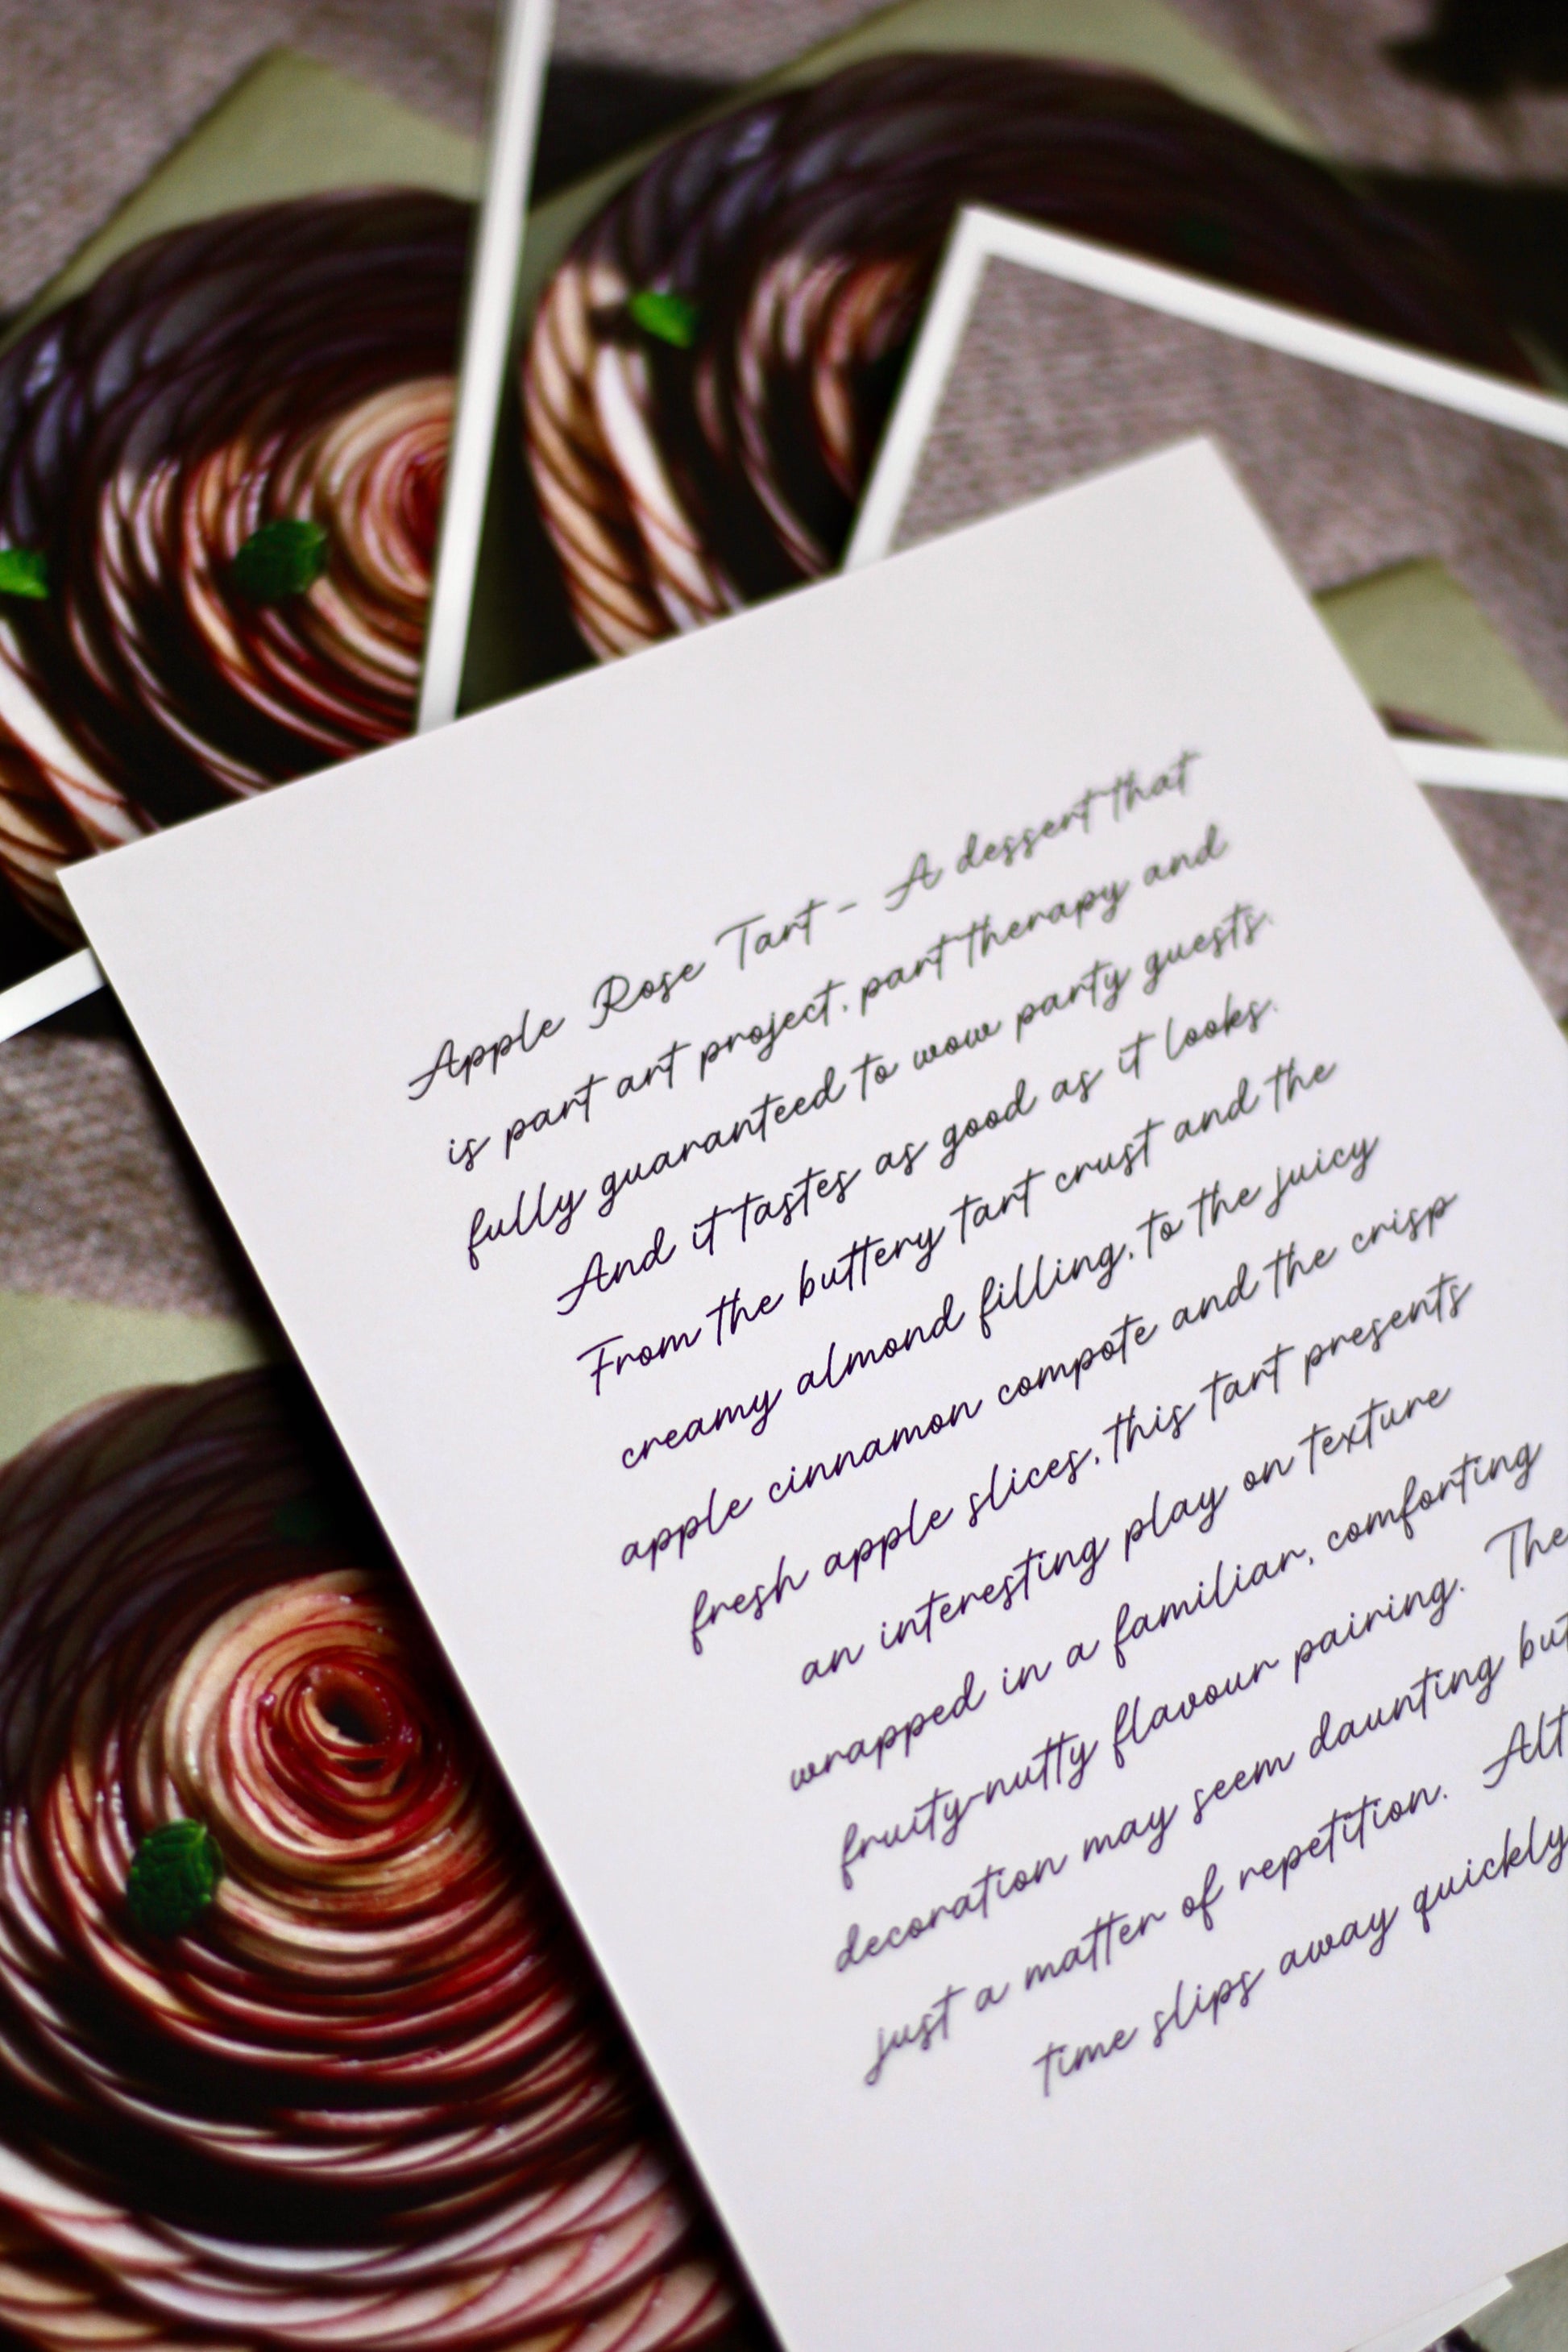 Apple Rose Tart - A dessert that
is part art project, part therapy and
fully guaranteed to wow party guests.
And it tastes as good as it looks.
From the buttery tart crust and the
creamy almond filling, to the juicy
apple cinnamon compote and the crisp
fresh apple slices, this tart presents
an interesting play on texture
wrapped in a familiar, comforting
fruity-nutty flavour pairing. The
decoration may seem daunting but
just a matter of repetition. Alt
time slips away quickly